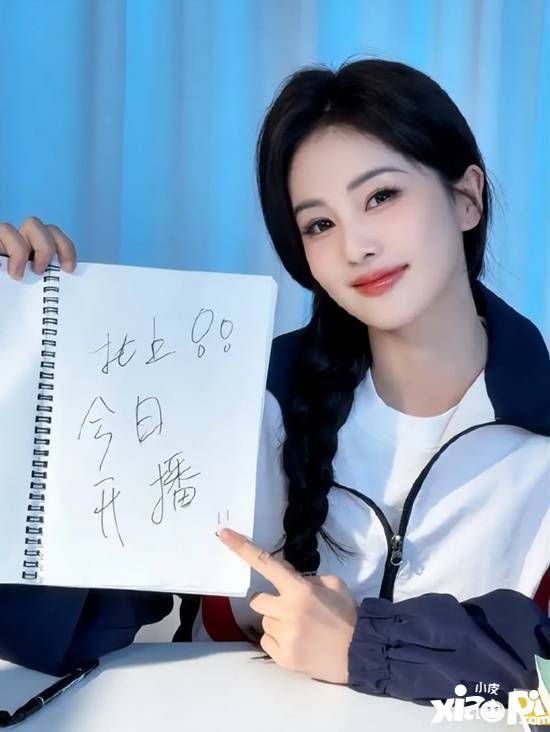 北上!!
今日
开播
!!
小皮
xiaopi
.com